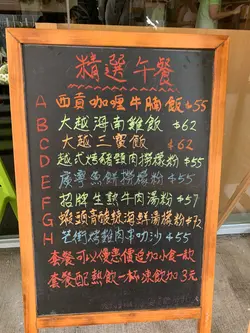 精選午餐
A 西貢咖喱牛腩飯 $55
B 大越海南雞飯 $62
C 大越三寶飯 $62
D 越式烤豬頸肉撈檬粉 $55
E 魚餅撈檬粉 $55
F 招牌生熟牛肉湯粉 $57
G 蝦頭膏酸辣海鮮湯檬粉 $72
H 香茅烤雞肉串叻沙 $55
套餐可以優惠價追加小食一款
套餐配熱飲一杯凍飲加3元